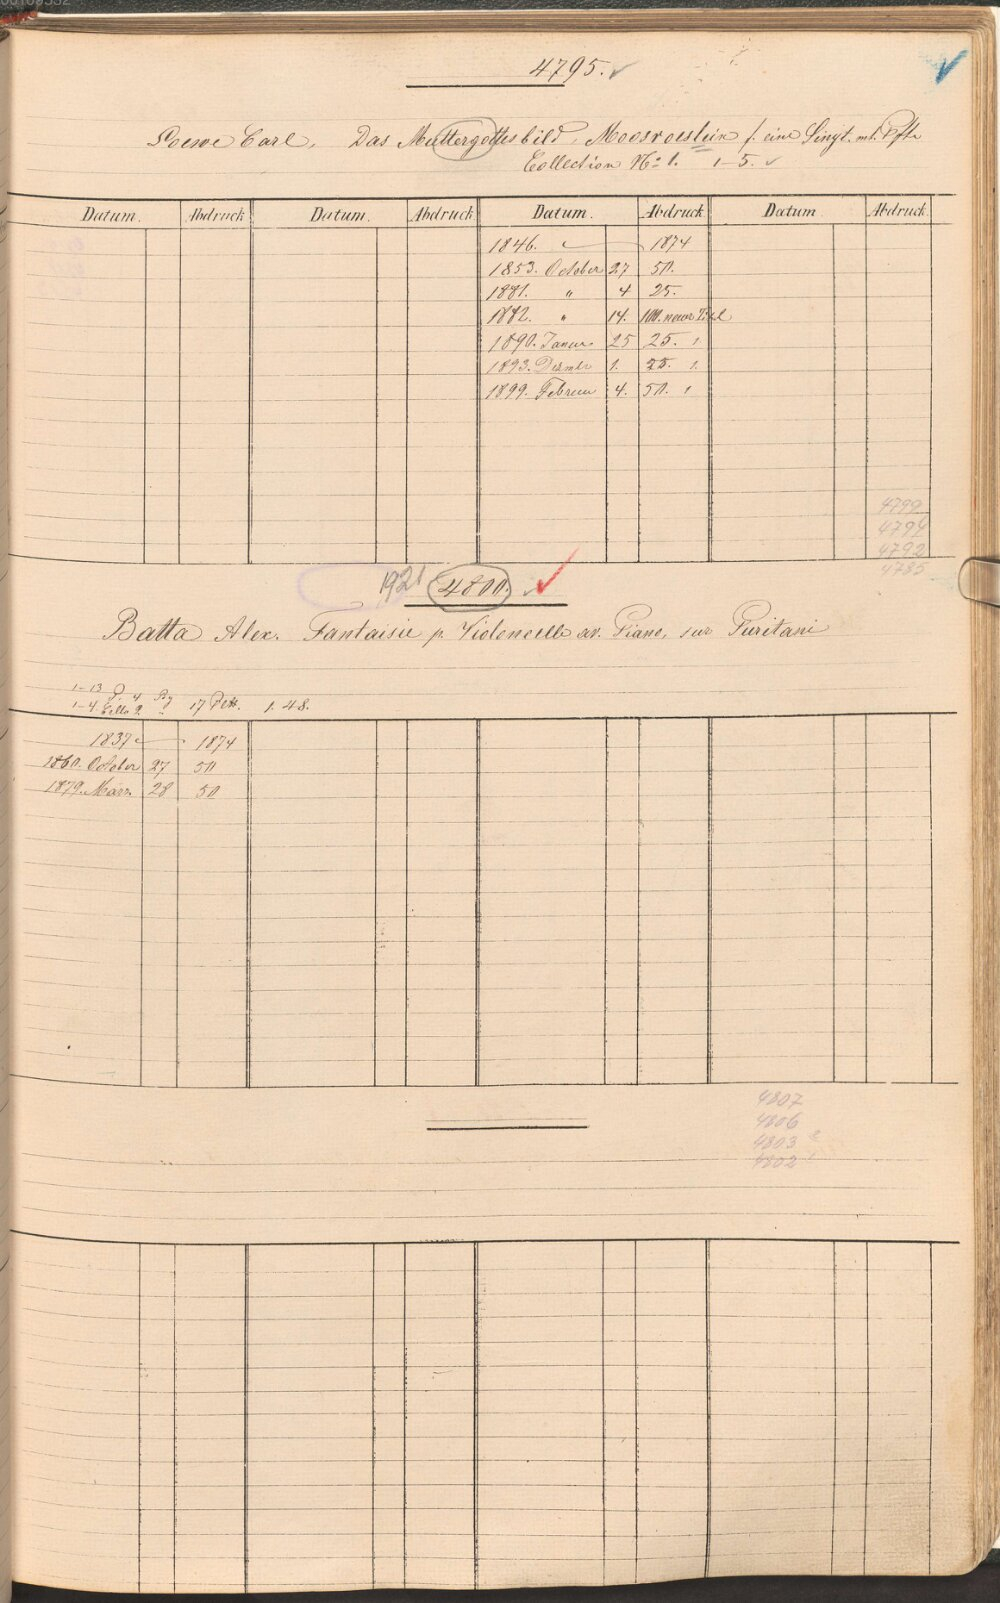 4795.
Loewe Carl, Das Muttergottesbild, Moosroeslein f. eine Singst. mt. Pfte
Collection No. 1. 1-5.
Datum. Abdruck Datum. Abdruck Datum. Abdruck Datum Abdruck
1846. 1874
1853. October 27 50.
1881. " 4 25.
1882. " 14. 100. neuer Titel
1890. Januar 25 25. "
1893. 1. 25. "
1899. Februar 4. 50. "
4799
4794
4792
4785
1921 4800.
Batta Alex. Fantaisie p. Violoncelle av. Piano, sur Puritani
1-13 P. 4
1-4 Cello 2. " 17 Plt. 1. 48.
1837 1874
1860. October 27 50
1879. März 28 50
4807
4806
4803 2
4802 1